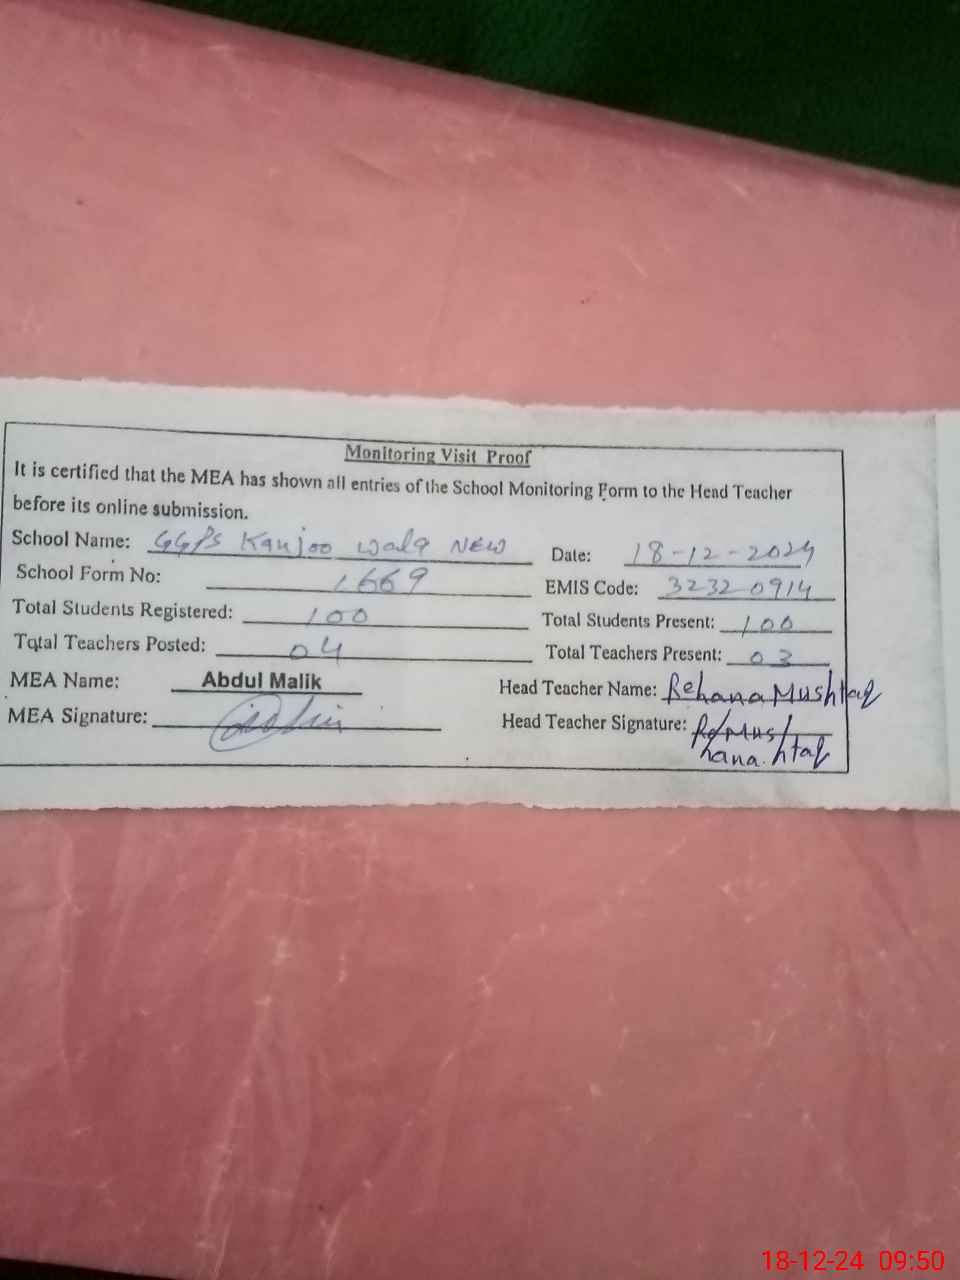 Monitoring Visit Proof
It is certified that the MEA has shown all entries of the School Monitoring Form to the Head Teacher
before its online submission.
School Name: GGPS Kanjoo wala NEW Date: 18-12-2024
School Form No: 1669 EMIS Code: 32320914
Total Students Registered: 100 Total Students Present: 100
Total Teachers Posted: 04 Total Teachers Present: 03
MEA Name: Abdul Malik Head Teacher Name: Rehana Mushtaq
MEA Signature: Head Teacher Signature: Rehana Mushtaq
18-12-24 09:50